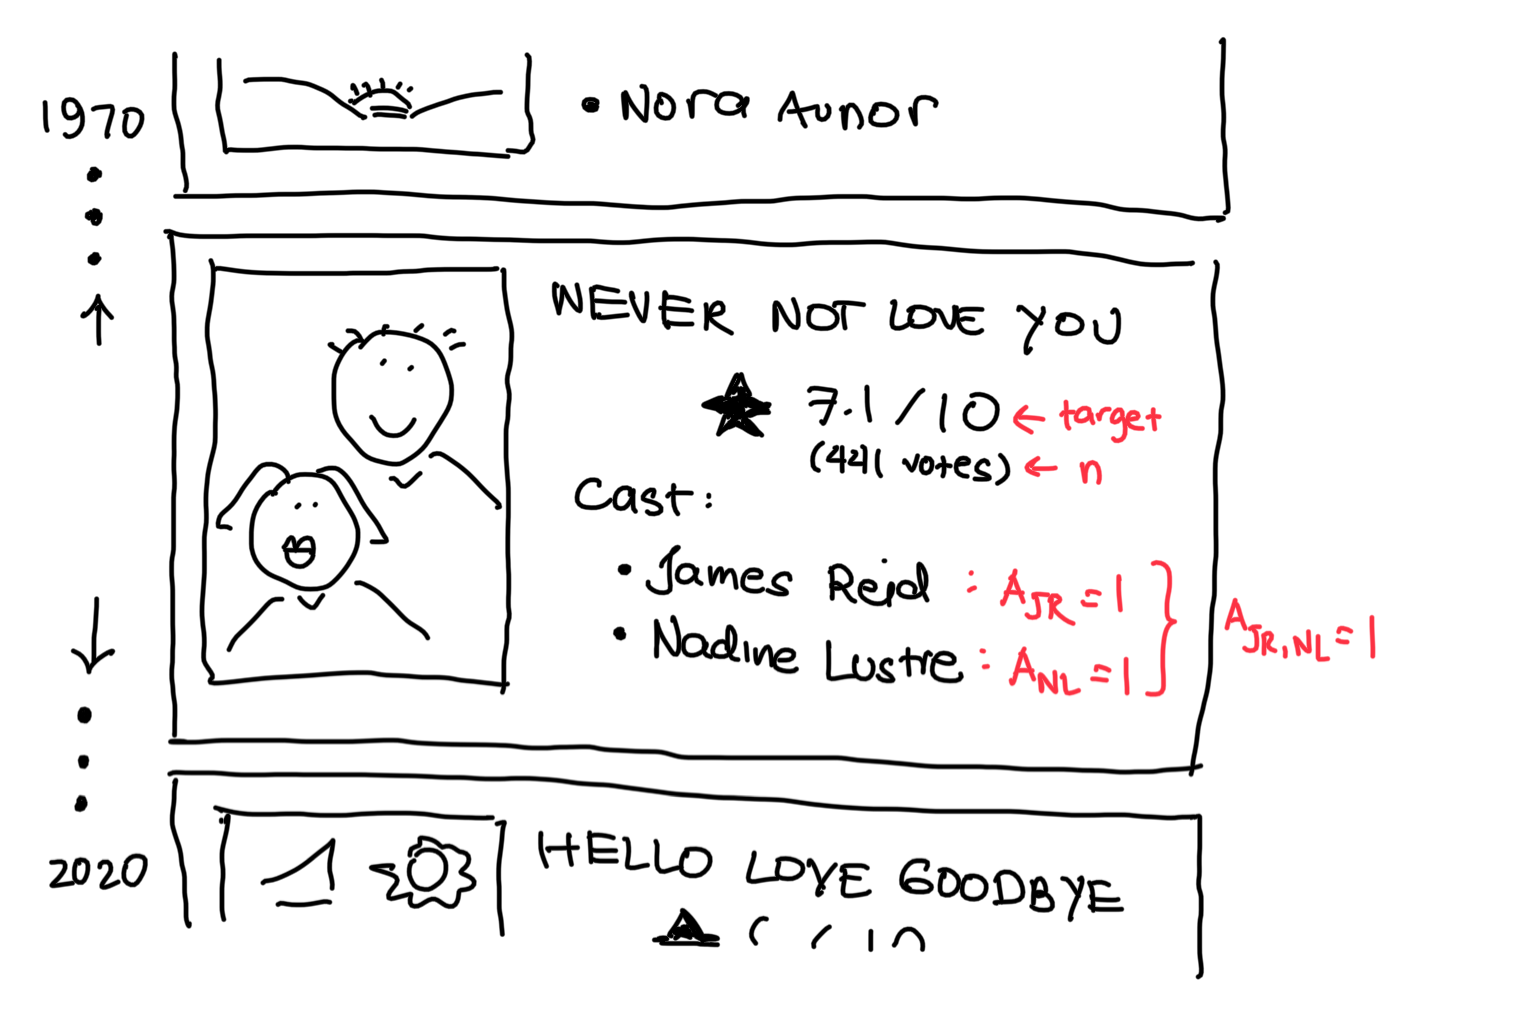 1970
• Nora Aunor
NEVER NOT LOVE YOU
★ 7.1/10 ← target
(441 votes) ← n
Cast:
• James Reid : A_JR = 1
• Nadine Lustre : A_NL = 1
A_JR,NL = 1
2020
HELLO LOVE GOODBYE